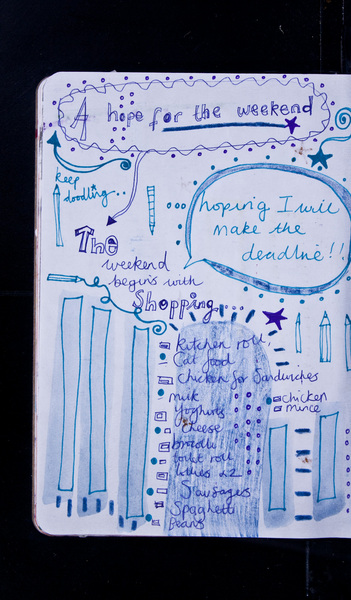 A hope for the weekend
keep
doodling...
hoping I will
make the
deadline!!
The
weekend
begins with
Shopping...
kitchen roll
Cat food
Chicken for Sandwiches
milk
Yoghurts
Cheese
toilet roll
Sausages
Spaghetti
Beans
chicken
mince